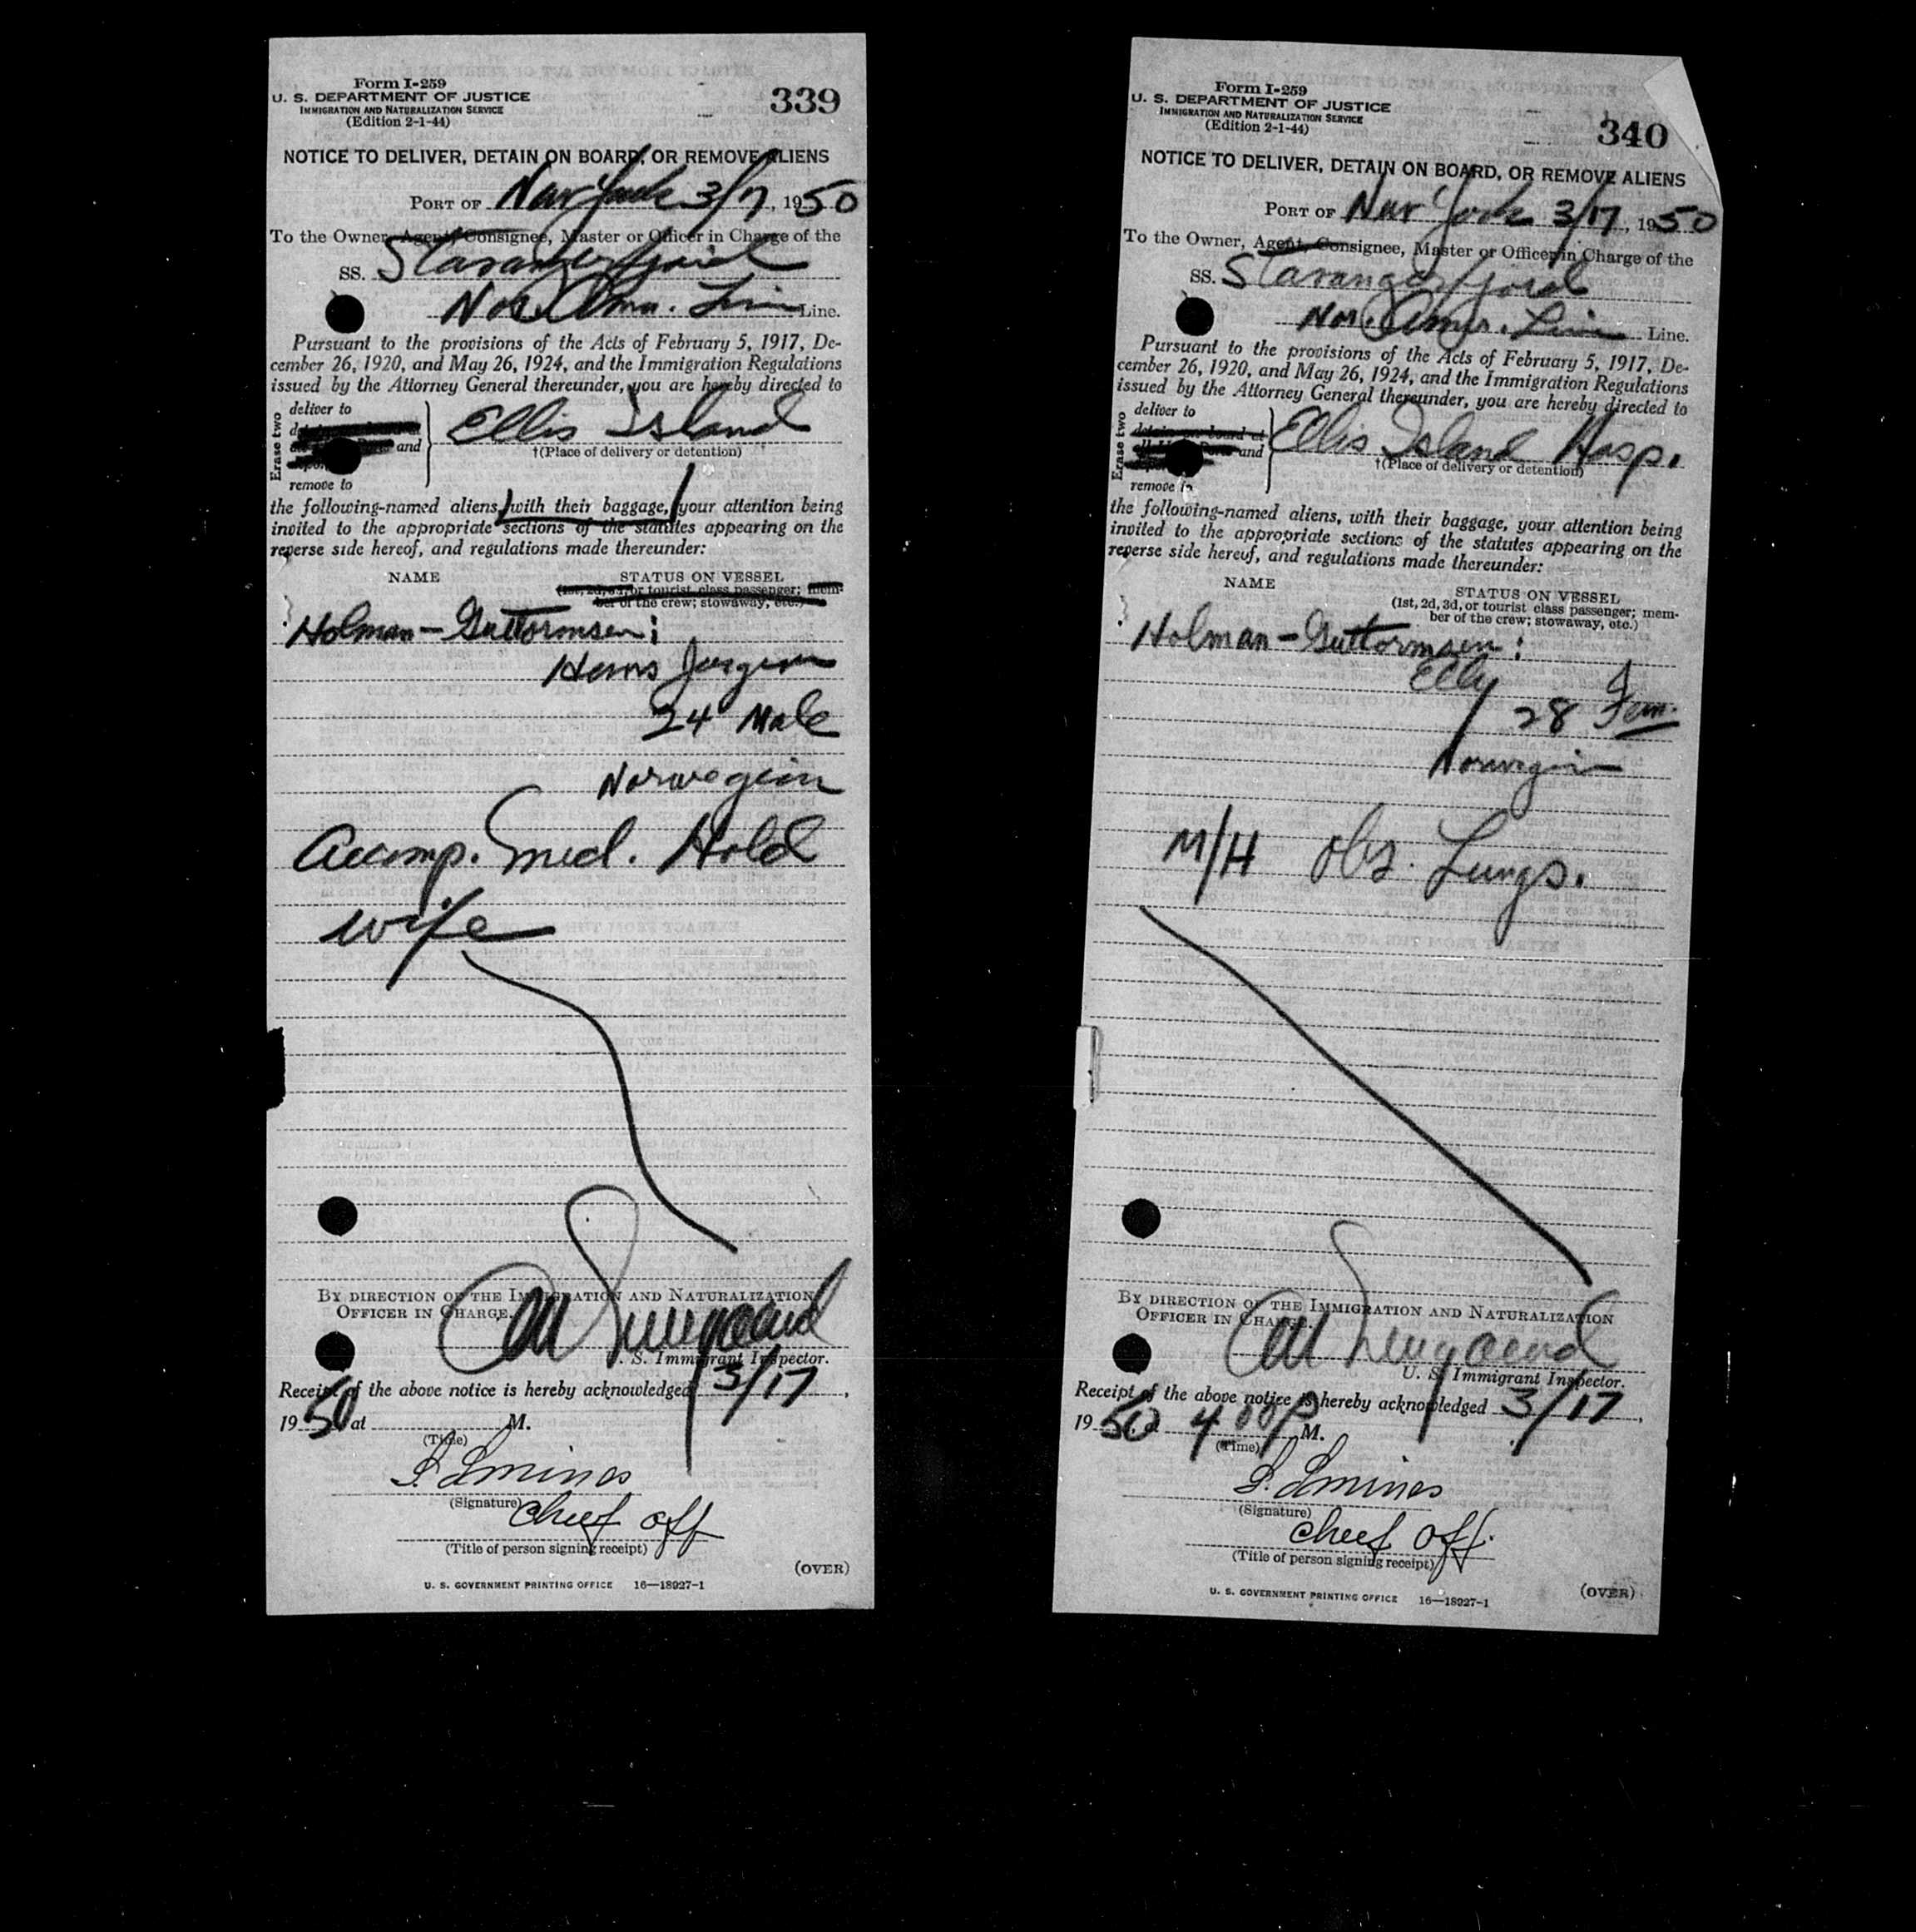 Form I-259
U. S. DEPARTMENT OF JUSTICE
IMMIGRATION AND NATURALIZATION SERVICE
(Edition 2-1-44)
339
NOTICE TO DELIVER, DETAIN ON BOARD, OR REMOVE ALIENS
PORT OF New York 3/17, 1950
To the Owner, Agent, Consignee, Master or Officer in Charge of the
SS. Stavangerfjord
Nor. Amer. Line Line.
Pursuant to the provisions of the Acts of February 5, 1917, De-
cember 26, 1920, and May 26, 1924, and the Immigration Regulations
issued by the Attorney General thereunder, you are hereby directed to
Erase two
deliver to
and
remove to
Ellis Island
†(Place of delivery or detention)
the following-named aliens, with their baggage, your attention being
invited to the appropriate sections of the statutes appearing on the
reverse side hereof, and regulations made thereunder:
NAME STATUS ON VESSEL
(1st, 2d, 3d, or tourist class passenger; mem-
ber of the crew; stowaway, etc.)
Holman-Guttormsen:
Hans Jurgen
24 Male
Norwegian
Accomp. Med. Hold
wife
BY DIRECTION OF THE IMMIGRATION AND NATURALIZATION
OFFICER IN CHARGE.
U. S. Immigrant Inspector.
Receipt of the above notice is hereby acknowledged 3/17,
1950 at M.
(Time)
(Signature)
Chief Off
(Title of person signing receipt)
(OVER)
U. S. GOVERNMENT PRINTING OFFICE 16—18927-1
Form I-259
U. S. DEPARTMENT OF JUSTICE
IMMIGRATION AND NATURALIZATION SERVICE
(Edition 2-1-44)
340
NOTICE TO DELIVER, DETAIN ON BOARD, OR REMOVE ALIENS
PORT OF New York 3/17, 1950
To the Owner, Agent, Consignee, Master or Officer in Charge of the
SS. Stavangerfjord
Nor. Amer. Line Line.
Pursuant to the provisions of the Acts of February 5, 1917, De-
cember 26, 1920, and May 26, 1924, and the Immigration Regulations
issued by the Attorney General thereunder, you are hereby directed to
Erase two
deliver to
detain on board at
and
remove to
Ellis Island Hosp.
†(Place of delivery or detention)
the following-named aliens, with their baggage, your attention being
invited to the appropriate sections of the statutes appearing on the
reverse side hereof, and regulations made thereunder:
NAME STATUS ON VESSEL
(1st, 2d, 3d, or tourist class passenger; mem-
ber of the crew; stowaway, etc.)
Holman-Guttormsen:
Elly
28 Fem.
Norwegian
M/H Obs. Lungs.
BY DIRECTION OF THE IMMIGRATION AND NATURALIZATION
OFFICER IN CHARGE.
U. S. Immigrant Inspector.
Receipt of the above notice is hereby acknowledged 3/17,
1950 4 00 P M.
(Time)
(Signature)
Chief Off.
(Title of person signing receipt)
(OVER)
U. S. GOVERNMENT PRINTING OFFICE 16—18927-1